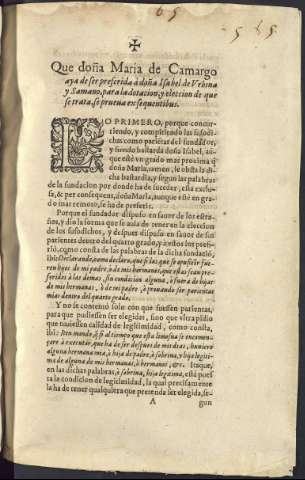 65
565
✠
Que doña Maria de Camargo
aya de ser preferida à doña Isabel de Vrbina
y Samano, para la dotacion, y eleccion de que
se trata, se prueua ex sequentibus.
LO PRIMERO, porque concur-
riendo, y compitiendo las susodi-
chas como parientas del fundador,
y siendo bastarda doña Isabel, aũ-
que esté en grado mas proxima q̃
doña Maria, tamen, le obsta la di-
cha bastardia, y segun las palabras
de la fundacion por donde ha de suceder, està exclu-
sa, & per consequens, doña Maria, aunque esté en gra-
do mas remoto, se ha de preferir.
Porque el fundador dispuso en fauor de los estra-
ños, y dio la forma que se auia de tener en la eleccion
de los susodichos, y despues dispuso en fauor de sus
parientes dentro del quarto grado, y à estos los prefi-
rió, como consta de las palabras de la dicha fundaciõ,
ibi: Declarando, como declaro, que si las que se opusiesse fue-
ren hijas de mi padre, ò de mis hermanos, que estas sean pre-
feridas à las demas, sin condicion alguna, ò fuera de hijas
de mis hermanos, y de mi padre, ò prouando ser parientas
mias dentro del quarto grado.
Y no se contentò solo con que fuessen parientas,
para que pudiessen ser elegidas, sino que vltra pidio
que tuuiessen calidad de legitimidad, como consta,
ibi: Iten mando, q̃ si al tiempo que esta limosna se encomen-
zare à executar, que ha de ser despues de mis dias, huuiere
alguna hermana mia, ò hija de padre, ò sobrina, y hija legiti-
ma de alguna de mis hermanas, ò hermanos, &c. Itaque,
en las dichas palabras, ò sobrina, hija legitima, està pues-
ta la condicion de legitimidad, la qual precisamente
la ha de tener qualquiera que pretenda ser elegida, se-
A gun